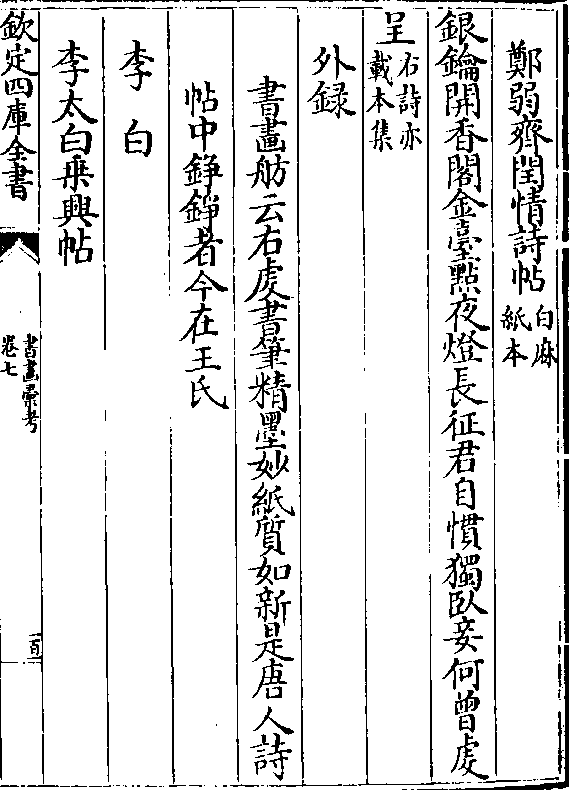 鄭弱齊閨情詩帖 白麻
紙本
銀鑰開香閣金臺點夜燈長征君自慣獨臥妾何曾虔
呈 右詩亦
載本集
外録
書畫舫云右虔書筆精墨妙紙質如新是唐人詩
帖中錚錚者今在王氏
李白
李太白乗興帖
欽定四庫全書
書畫彙考
卷七